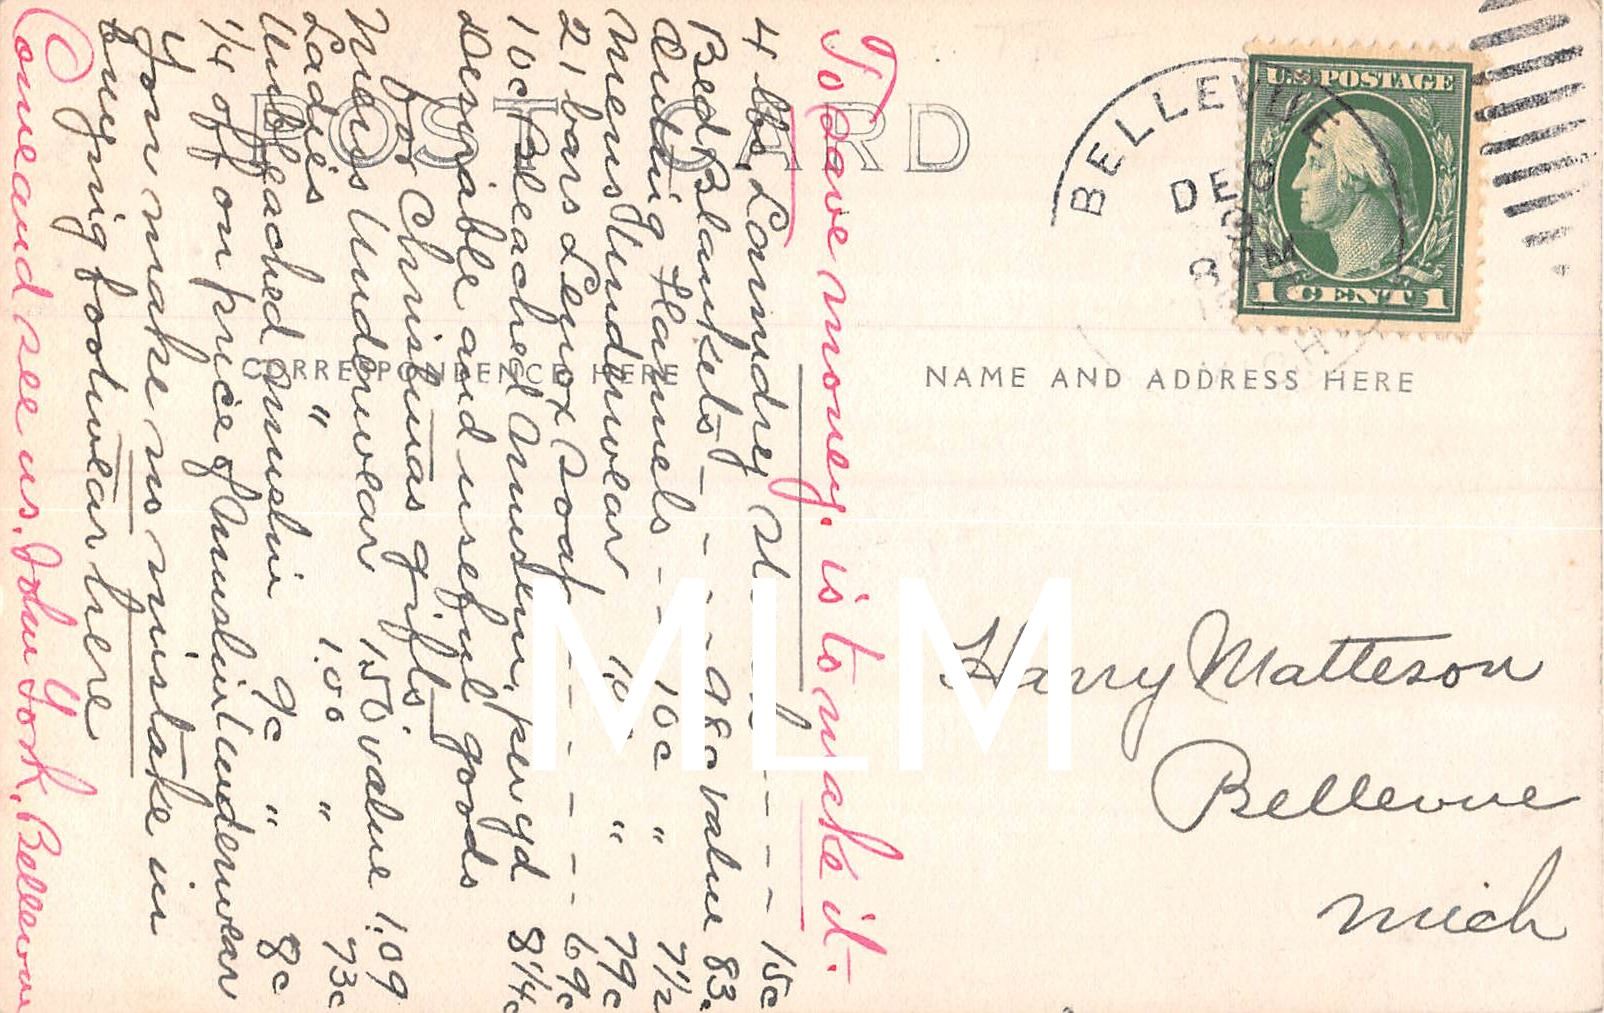 POST CARD
CORRESPONDENCE HERE
NAME AND ADDRESS HERE
U.S. POSTAGE
1 CENT 1
BELLEVUE
DEC
8
MICH
Harry Matteson
Bellevue
Mich
To save money. is to make it.
4 lbs. Laundry - - - - 15c
Bed Blankets - - - 98c value 83c
Outing Flannels - - 10c " 7 1/2
Mens Underwear " 79c
21 bars Lenox Soap - - - - - - 69c
10c Bleached Muslin, per yd 8 1/4c
Desirable and useful goods
for Christmas gifts.
Mens Underwear 1.50 value 1.09
Ladies " 1.00 " 73c
Unbleached Muslin 9c " 8c
1/4 off on price of Muslin Underwear
You make no mistake in
buying footwear here
Come and see us. John York, Bellevue
MLM